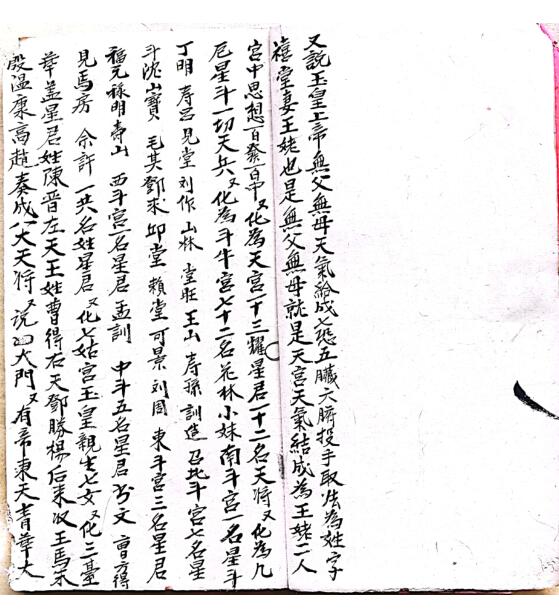 又說玉皇上帝無父無母天氣給成七恐五臟六腑投手取法為姓字
禧堂妻王姥也是無父無母就是天宮天氣結成為王姥二人
宮中思想一百發百中又化為天宮一十三耀星君一十二名天將又化為九
厄星斗一切天兵又化為斗牛宮七十二名花林小妹南斗宮一名星斗
丁明 寿呂 見堂 刘作 山林 堂旺 王山 寿孫 訓造 召北斗宮七名星
斗沈山寶 毛其 鄧求 邱堂 賴堂 可景 刘周 東斗宮三名星君
福元 祿明 壽山 西斗宮一名星君 孟訓 中斗五名星君 文 曹得
見馬房 余許 一共名姓星君又化七姑宮玉皇親生七女又化三臺
華盖星君姓陳晋左天王姓曹得右天鄧勝楊后来収王馬
殷温康高趙奏成八大天将又說四大門又有帝東天青華大